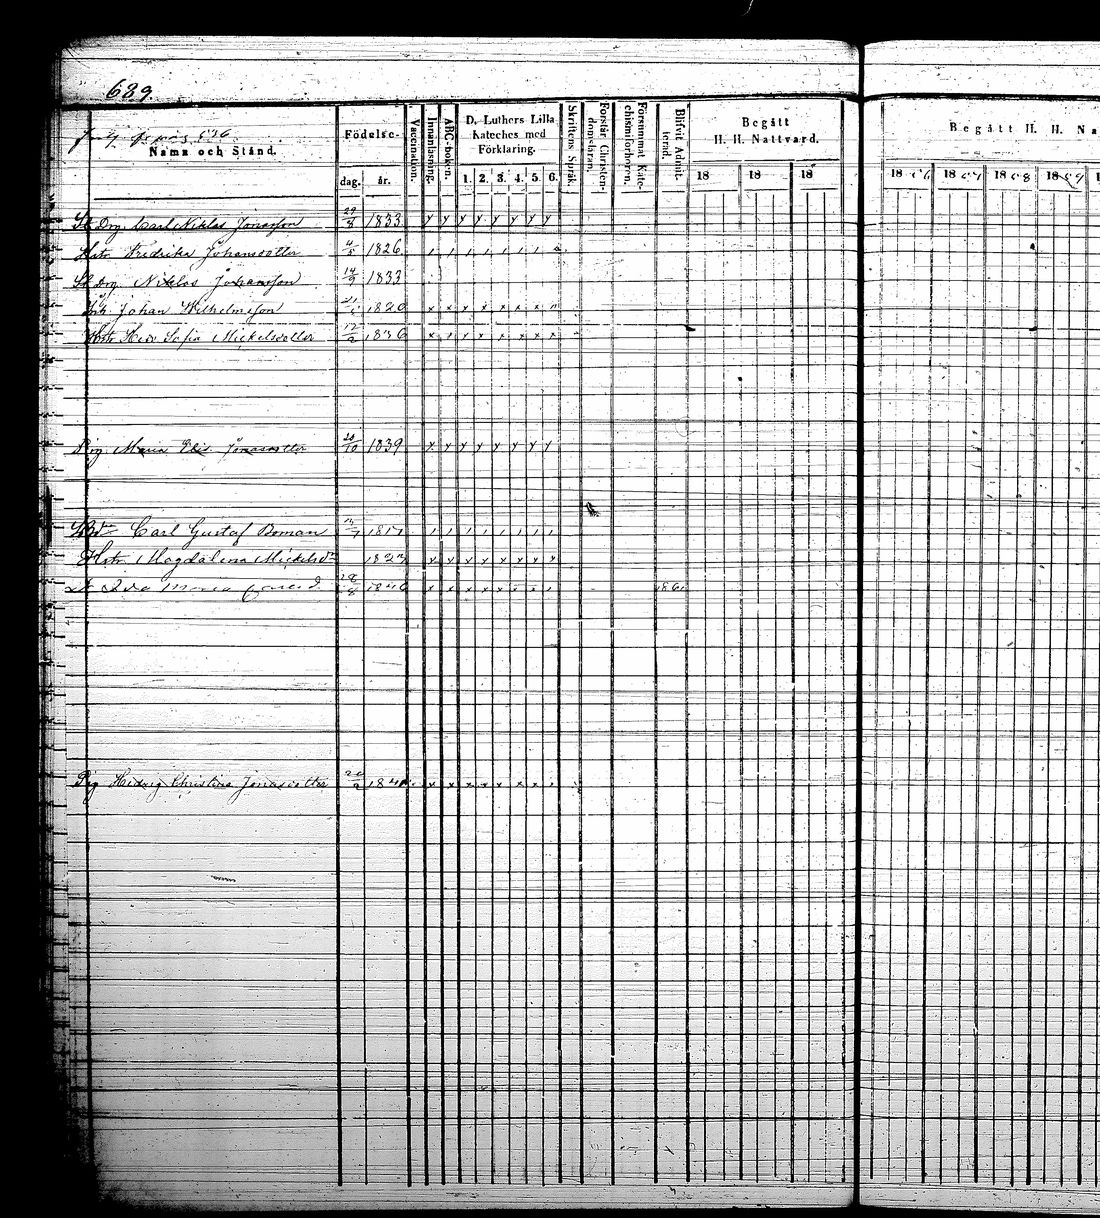 689.
Namn och Stånd.
Födelse-
dag. år.
Vaccination.
Innanläsning.
ABC-boken.
D. Luthers Lilla
Kateches med
Förklaring.
1. 2. 3. 4. 5. 6.
Skriftens Språk.
Förstår Christen-
domsläran.
Försummat Kate-
chismiförhören.
Blifvit Admit-
terad.
Begått
H. H. Nattvard.
18 18 18
Begått H. H. Na
1856 1857 1858 1859
Drg. Carl Niklas Jonasson 29/8 1833
Hstr Fredrika Johansdotter 4/5 1826
Drg Niklas Johansson 14/9 1833
Johan Wilhelmsson 1820
Hstr Hed Sofia Mickelsdotter 12/2 1836
Pig. Maria Elis. Jonasdotter 20/10 1839
Carl Gustaf Boman 1817
Hstr. Magdalena Mickelsdr 1827
Ida Maria 28/8 1846
Pig Hedvig Christina Jonasdotter